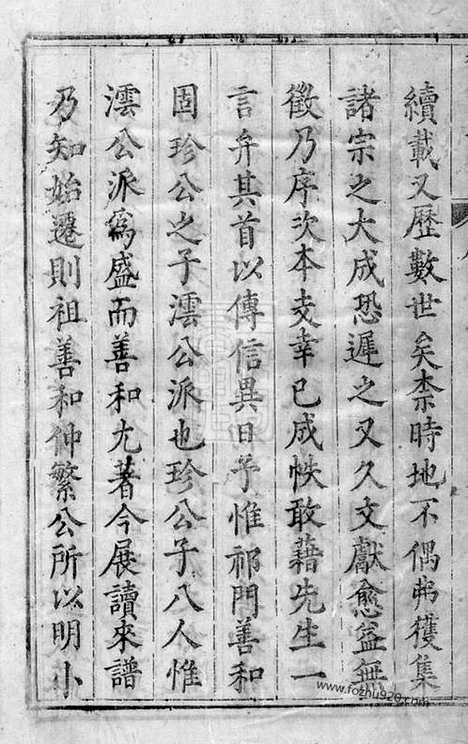 續載又歷數世矣柰時地不偶弗獲集
諸宗之大成恐遲之又久文獻愈益無
徵乃序次本支幸已成帙敢藉先生一
言弁其首以傳信異日予惟祁門善和
固珍公之子澐公派也珍公子八人惟
澐公派為盛而善和尤著今展讀來譜
乃知始遷則祖善和仲繁公所以明小
www.fozhu920.com